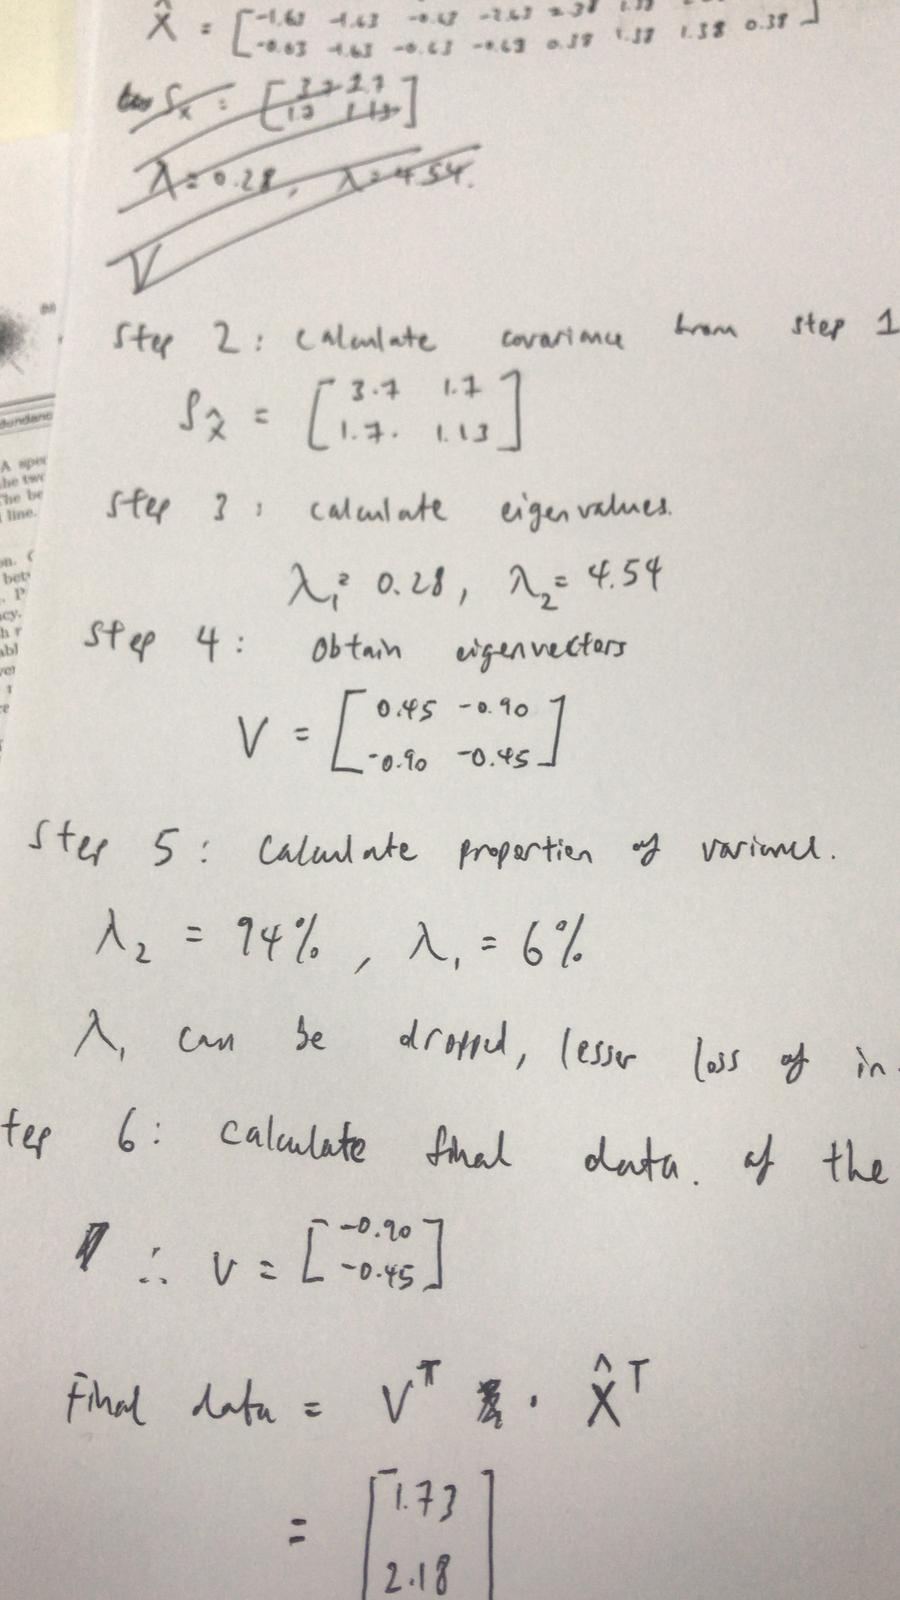 X̂ = [-1.63 -1.63 -0.63 -2.63 2.38 1.38
-0.63 -1.63 -0.63 -0.63 0.38 1.38 1.38 0.38]
Sx : [3.7 1.7
1.7 1.13]
λ = 0.28, λ = 4.54.
V
Step 2: Calculate covariance from step 1
Sx̂ = [3.7 1.7
1.7. 1.13]
Step 3: calculate eigenvalues.
λ₁= 0.28, λ₂= 4.54
Step 4: Obtain eigenvectors
V = [0.45 -0.90
-0.90 -0.45]
Step 5: Calculate proportion of variance.
λ₂ = 94%, λ₁ = 6%
λ₁ can be dropped, lesser loss of in
tep 6: calculate final data. of the
∴ V = [-0.90
-0.45]
Final data = Vᵀ · X̂ᵀ
= [1.73
2.18
dundanc
A spec
the two
The be
line.